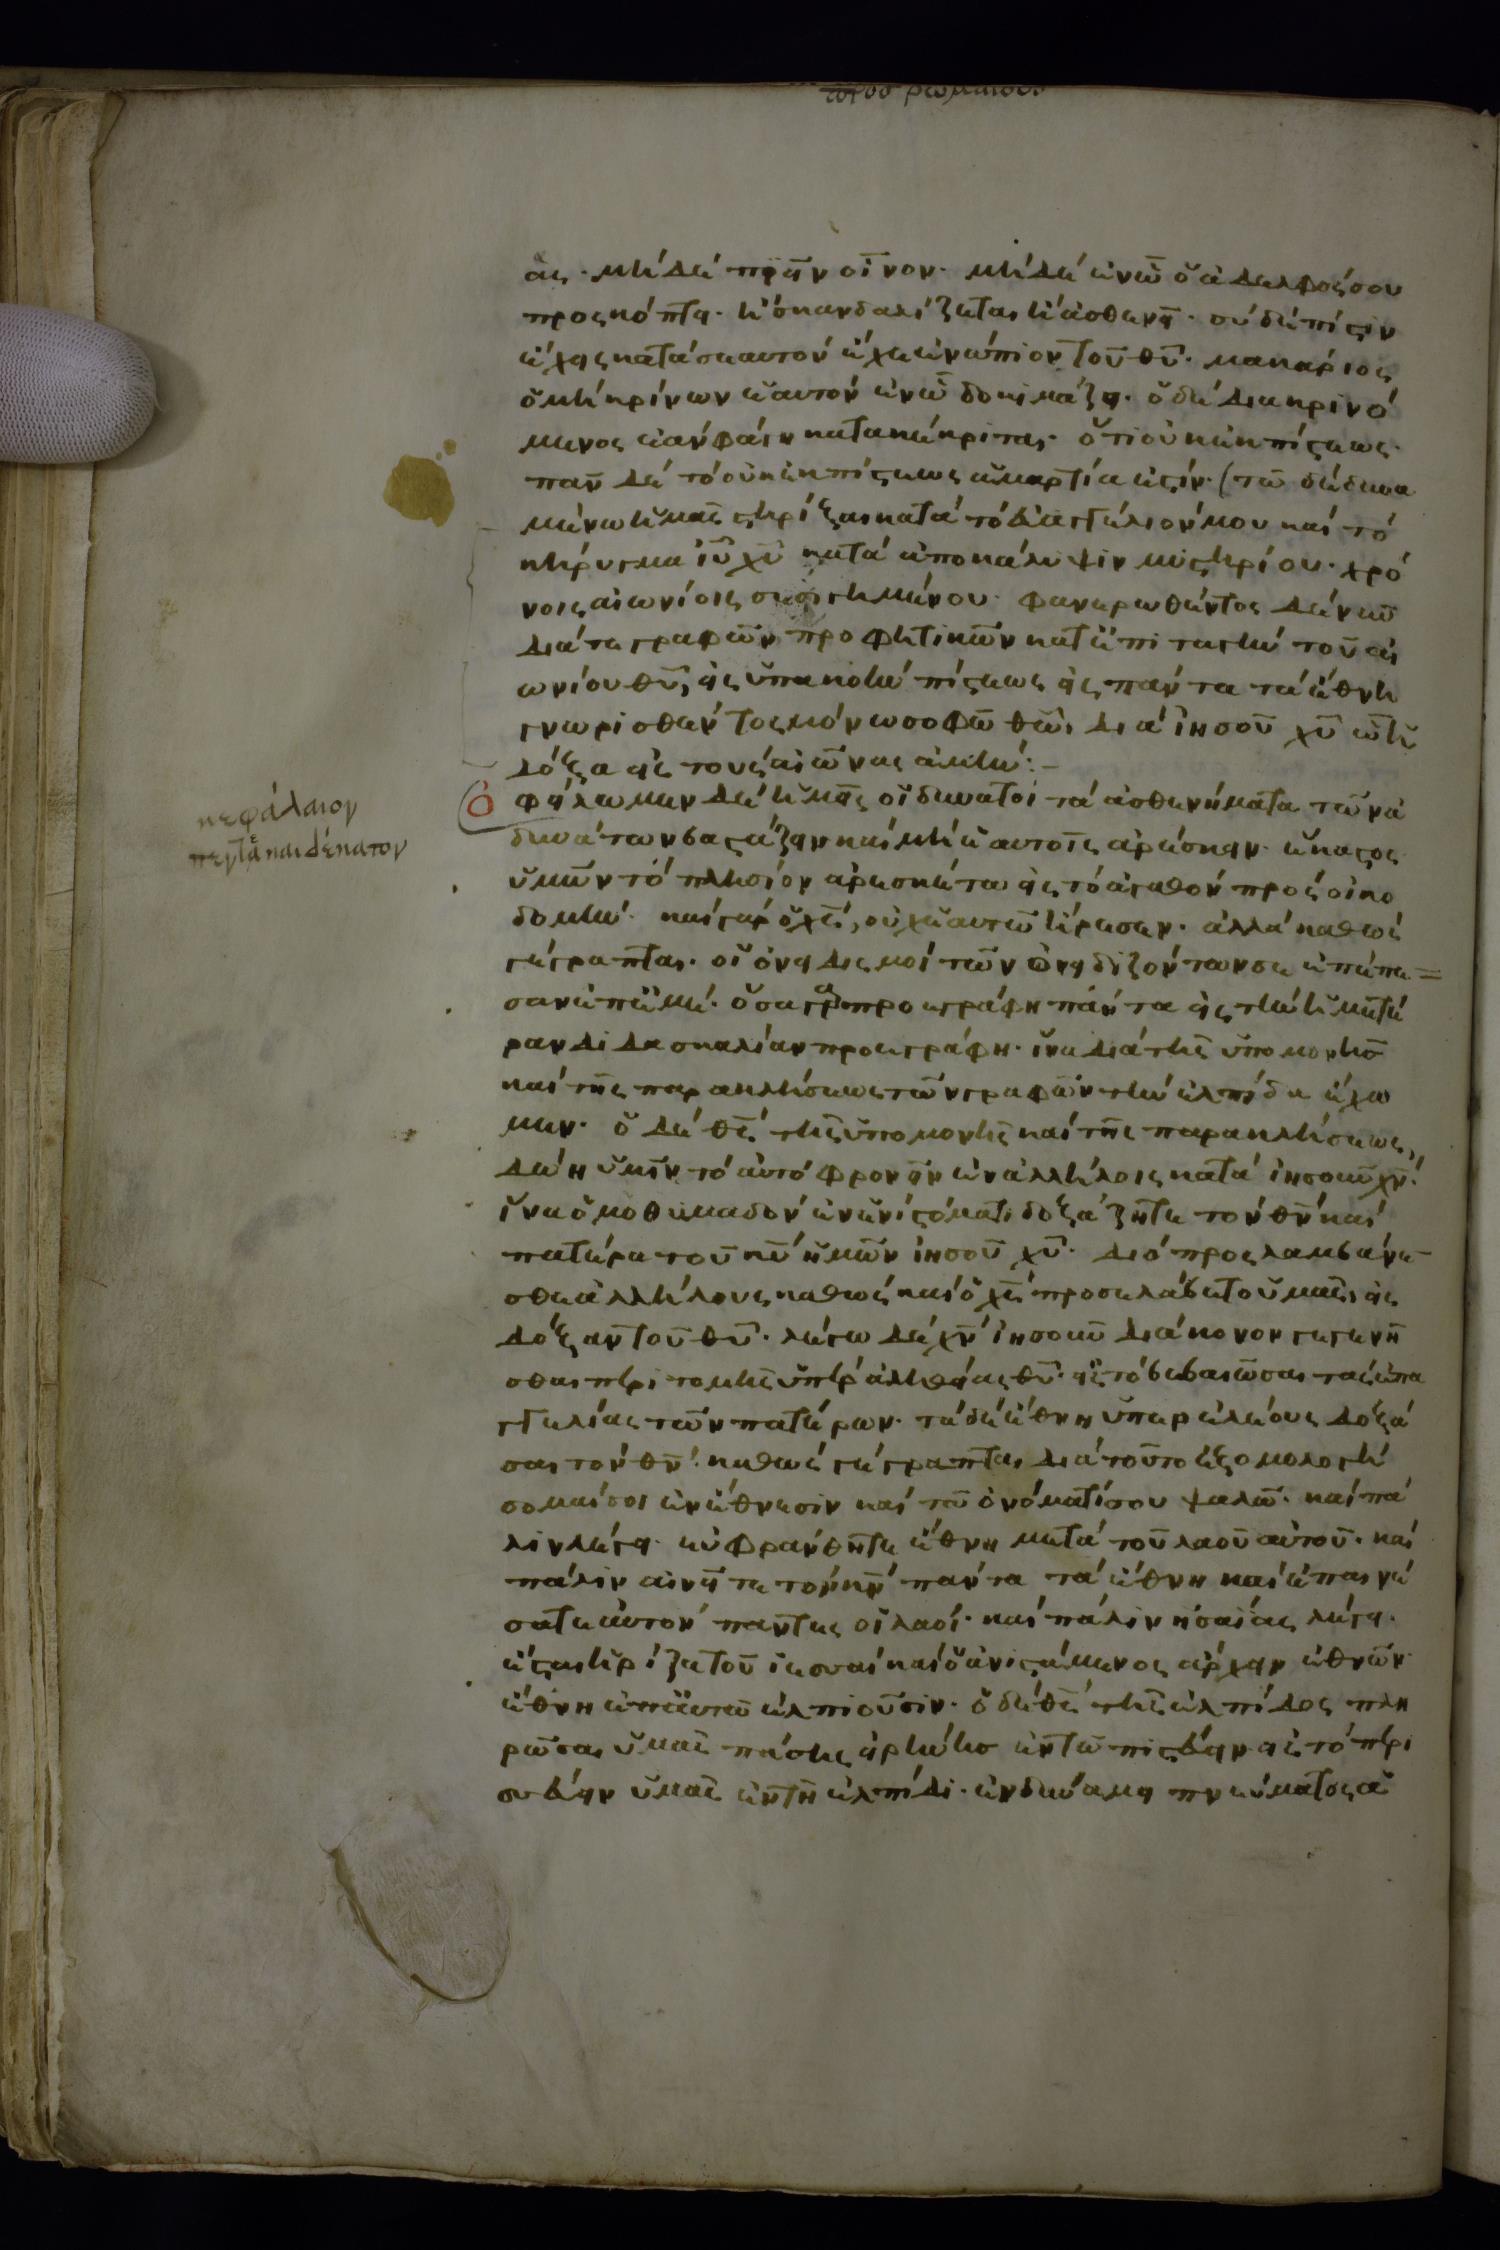 προσ ρωμαιους
ἀς· μὴ δὲ πιεῖν οἶνον· μὴ δὲ ἐν ὧ ὁ ἀδελφός σου
προςκόπτει· ἢ σκανδαλίζεται ἢ ἀσθενεῖ· σὺ δὲ πίςιν
ἔχεις κατὰ σεαυτὸν ἔχε ἐνώπιον τοῦ θῦ· μακάριος
ὁ μὴ κρίνων ἑαυτὸν ἐν ὧ δοκιμάζει· ὁ δὲ διακρινό
μενος ἐὰν φάγη κατακέκριται· ὅτι οὐκ ἐκ πίςεως·
πᾶν δὲ τὸ οὐκ ἐκ πίςεως ἁμαρτία ἐςίν· (τῶ δὲ δυνα
μένω ἡμᾶς ςηρίξαι κατὰ τὸ ἐυαγγέλιόν μου καὶ τὸ
κήρυγμα ἰῦ χῦ κατὰ ἀποκάλυψιν μυςηρίου· χρό
νοις αἰωνίοις σεσιγημένου· φανερωθέντος δὲ νῦν
διά τε γραφῶν προφητικῶν κατ ἐπιταγὴν τοῦ αἰ
ωνίου θῦ, εἰς ὑπακοὴν πίςεως εἰς πάντα τὰ ἔθνη
γνωρισθέντος μόνω σοφῶ θῶ· διὰ ἰησοῦ χῦ ὧ ἡ
δόξα εἰς τοὺς αἰῶνας ἀμήν:–
κεφάλαιον
πεντε και δέκατον
Ὀφείλωμεν δὲ ἡμεῖς οἱ δυνατοὶ τὰ ἀσθενήματα τῶν ἀ
δυνάτων βαςάζειν καὶ μὴ ἑαυτοῖς ἀρέσκειν· ἕκαςος
ὑμῶν τὸ πλησίον ἀρεσκέτω εἰς τὸ ἀγαθὸν πρὸς οἰκο
δομήν· καὶ γὰρ ὁ χς, οὐχ ἑαυτῶ ἤρεσεν· ἀλλὰ καθὼς
γέγραπται· οἱ ὀνειδισμοὶ τῶν ὀνειδιζόντων σε ἐπέπε
σαν ἐπ ἐμέ· ὅσα γὰρ προεγράφη πάντα εἰς τὴν ἡμετέ
ραν διδασκαλίαν προεγράφη· ἵνα διὰ τῆς ὑπομονῆσ
καὶ τῆς παρακλήσεως τῶν γραφῶν τὴν ἐλπίδα ἔχω
μεν· ὁ δὲ θς τῆς ὑπομονῆς καὶ τῆς παρακλήσεως,
δώη ὑμῖν τὸ αὐτὸ φρονεῖν ἐν ἀλλήλοις κατὰ ἰησοῦν χν·
ἵνα ὁμοθυμαδὸν ἐν ἑνὶ ςόματι δοξάζητε τὸν θν καὶ
πατέρα τοῦ κῦ ἡμῶν ἰησοῦ χῦ· διὸ προςλαμβάνε
σθε ἀλλήλους καθὼς καὶ ὁ χς προσελάβετο ὑμᾶς, εἰς
δόξαν τοῦ θῦ· λέγω δὲ χν ἰησοῦν διάκονον γεγενῆ
σθαι περιτομῆς ὑπὲρ ἀληθείας θῦ· εἰς τὸ βεβαιῶσαι τὰς ἐπα
γγελίας τῶν πατέρων· τὰ δὲ ἔθνη ὑπερ ἐλέους δοξά
σαι τὸν θν· καθὼς γέγραπται, διὰ τοῦτο ἐξομολογή
σομαί σοι ἐν ἔθνεσιν καὶ τῶ ὀνόματί σου ψαλῶ· καὶ πά
λιν λέγει· εὐφράνθητε ἔθνη μετὰ τοῦ λαοῦ αὐτοῦ· καὶ
πάλιν αἰνεῖτε τὸν κν πάντα τὰ ἔθνη καὶ ἐπαινέ
σατε αὐτὸν πάντες οἱ λαοί· καὶ πάλιν ἡσαίας λέγει·
ἔςαι ἡ ρίζα τοῦ ἰεσσαὶ καὶ ὁ ἀνιςάμενος ἄρχειν ἐθνῶν·
ἔθνη ἐπ αὐτῶ ἐλπιοῦσιν· ὁ δὲ θς τῆς ἐλπίδος πλη
ρῶσαι ὑμᾶς πάσης εἰρήνης ἐν τῶ πιςεύειν εἰς τὸ περι
σεύειν ὑμᾶς ἐν τῆ ἐλπίδι· ἐν δυνάμει πνεύματος ἁ